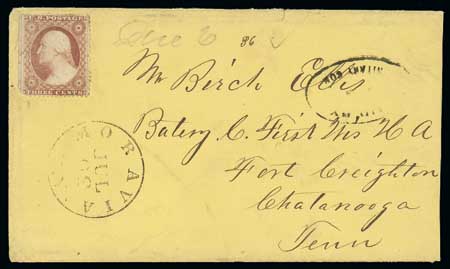 U.S. POSTAGE
THREE CENTS
86
Mr Birch
Batery C. First Wis H A
Fort Creighton
Chatanooga
Tenn
MORAVIA
JUL